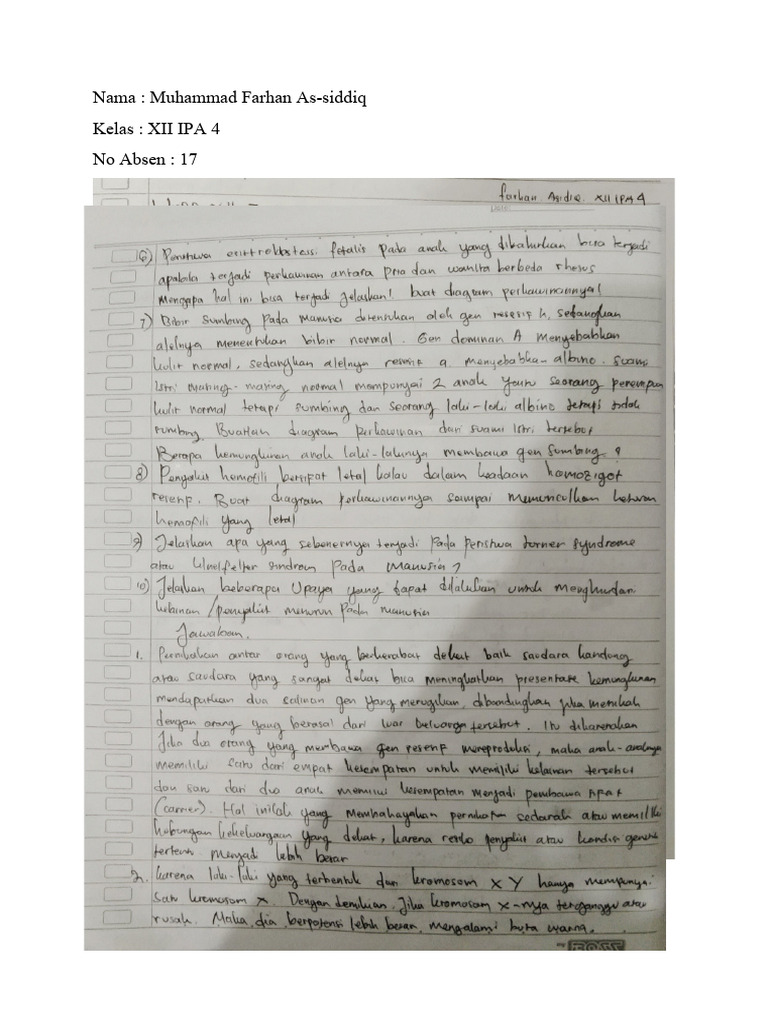 Nama : Muhammad Farhan As-siddiq
Kelas : XII IPA 4
No Absen : 17
farhan Asidiq XII IPA 4
6) Peristiwa fetalis pada anak yang dilahirkan bisa terjadi
apabila terjadi perkawinan antara pria dan wanita berbeda rhesus
Mengapa hal ini bisa terjadi jelaskan! buat diagram perkawinannya!
7) Bibir Sumbing pada manusia ditentukan oleh gen resesif h, sedangkan
alelnya menentukan bibir normal. Gen dominan A menyebabkan
kulit normal, sedangkan alelnya resesif a menyebabkan albino. suami
istri masing-masing normal mempunyai 2 anak yaitu seorang perempuan
kulit normal tetapi sumbing dan seorang laki-laki albino tetapi tidak
sumbing. Buatlah diagram perkawinan dari suami istri tersebut
Berapa kemungkinan anak laki-lakinya membawa gen sumbing?
8) Penyakit hemofili bersifat letal kalau dalam keadaan homozigot
resesif. Buat diagram perkawinannya sampai memunculkan
hemofili yang letal
9) Jelaskan apa yang sebenernya terjadi pada peristiwa turner syndrome
atau sindrom pada manusia?
10) Jelaskan beberapa Upaya yang dapat dilakukan untuk
kelainan /penyakit menurun pada manusia
Jawaban.
1. Pernikahan antar orang yang berkerabat dekat baik saudara kandung
atau saudara yang sangat dekat bisa meningkatkan presentase kemungkinan
mendapatkan dua salinan gen yang merugikan, dibandingkan jika menikah
dengan orang yang berasal dari luar keluarga tersebut. Itu dikarenakan
Jika dua orang yang membawa gen resesif mereproduksi, maka anak-anaknya
memiliki satu dari empat kesempatan untuk memiliki kelainan tersebut
dan satu dari dua anak memiliki kesempatan menjadi pembawa sifat
(carrier). Hal inilah yang membahayakan pernikahan sedarah atau memiliki
hubungan kekeluargaan yang dekat, karena resiko penyakit atau kondisi genetik
tertentu menjadi lebih besar
2. karena laki-laki yang terbentuk dari kromosom XY hanya mempunyai
satu kromosom X. Dengan demikian. Jika kromosom X-nya terganggu atau
rusak. Maka, dia berpotensi lebih besar mengalami buta warna.